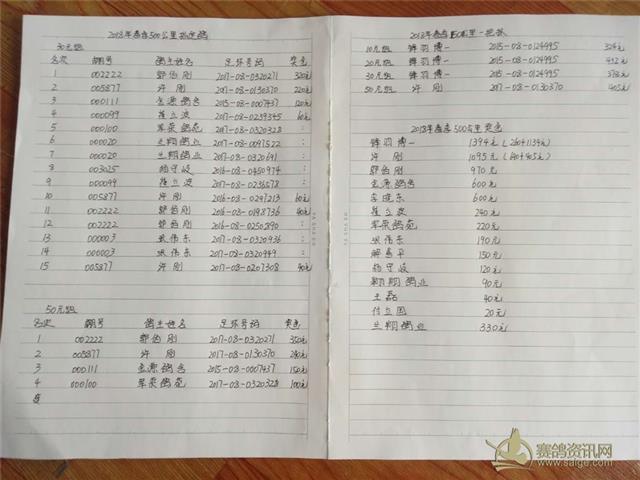 2018年春季500公里指定鸽
30元组
名次 棚号 鸽主姓名 足环号码 奖金
1 002222 郭伯刚 2017-08-0320271 320元
2 005877 许刚 2017-08-0130370 220元
3 000111 金源鸽舍 2015-08-0007437 120元
4 000099 崔立波 2017-08-0239345 60元
5 000100 军荣鸽苑 2017-08-0320328 :
6 000020 兰翔鸽业 2017-08-0091522 :
7 000020 兰翔鸽业 2017-08-0320691 :
8 003025 杨守岐 2016-08-0450974 :
9 000099 崔立波 2017-08-0236578 :
10 005877 许刚 2016-08-0297213 60元
11 002222 郭伯刚 2016-08-0198736 40元
12 002222 郭伯刚 2016-08-0250890 :
13 000003 洪伟东 2017-08-0320936 :
14 000003 洪伟东 2017-08-0320949 :
15 005877 许刚 2017-08-0207308 40元
50元组
名次 棚号 鸽主姓名 足环号码 奖金
1 002222 郭伯刚 2017-08-0320271 350元
2 005877 许刚 2017-08-0130370 250元
3 000111 金源鸽舍 2015-08-0007437 150元
4 000100 军荣鸽苑 2017-08-0320328 100元
2018年春季 公里一把抓
10元组 锋羽博一 2015-08-0124995 324元
20元组 锋羽博一 2015-08-0124995 432元
30元组 锋羽博一 2015-08-0124995 378元
50元组 许刚 2017-08-0130370 405元
2018年春季500公里奖金
锋羽博一 1394元 (260+1134元)
许刚 1095元
郭伯刚 970元
金源鸽舍 600元
李晓东 600元
崔立波 240元
军荣鸽苑 220元
洪伟东 190元
150元
杨守岐 120元
翱翔鸽业 90元
王磊 40元
付立国 20元
兰翔鸽业 330元
赛鸽资讯网
www.saige.com